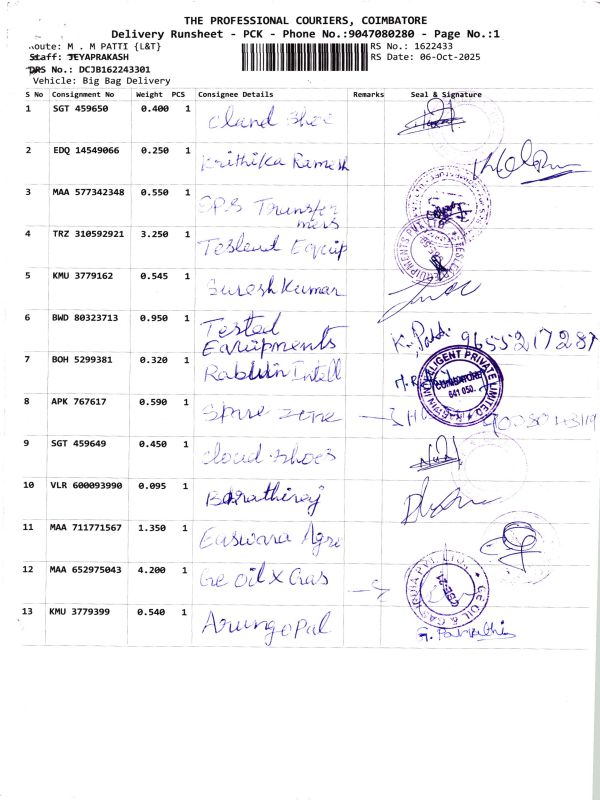 THE PROFESSIONAL COURIERS, COIMBATORE
Delivery Runsheet - PCK - Phone No.:9047080280 - Page No.:1
Route: M . M PATTI {L&T}
RS No.: 1622433
Staff: JEYAPRAKASH
RS Date: 06-Oct-2025
DRS No.: DCJB162243301
Vehicle: Big Bag Delivery
S No Consignment No Weight PCS Consignee Details Remarks Seal & Signature
1 SGT 459650 0.400 1 Cloud Shoe
2 EDQ 14549066 0.250 1 Krithika Ramesh
3 MAA 577342348 0.550 1 Transfor
mers
4 TRZ 310592921 3.250 1 Equip
5 KMU 3779162 0.545 1 Suresh Kumar
6 BWD 80323713 0.950 1 Tested
Equipments
7 BOH 5299381 0.320 1 Intell
COIMBATORE
641 050.
8 APK 767617 0.590 1 Spare zone
9 SGT 459649 0.450 1 Cloud Shoes
10 VLR 600093990 0.095 1 Barathiraj
11 MAA 711771567 1.350 1 Easwara Agro
12 MAA 652975043 4.200 1 Ge oil & Gas
13 KMU 3779399 0.540 1 Arungopal